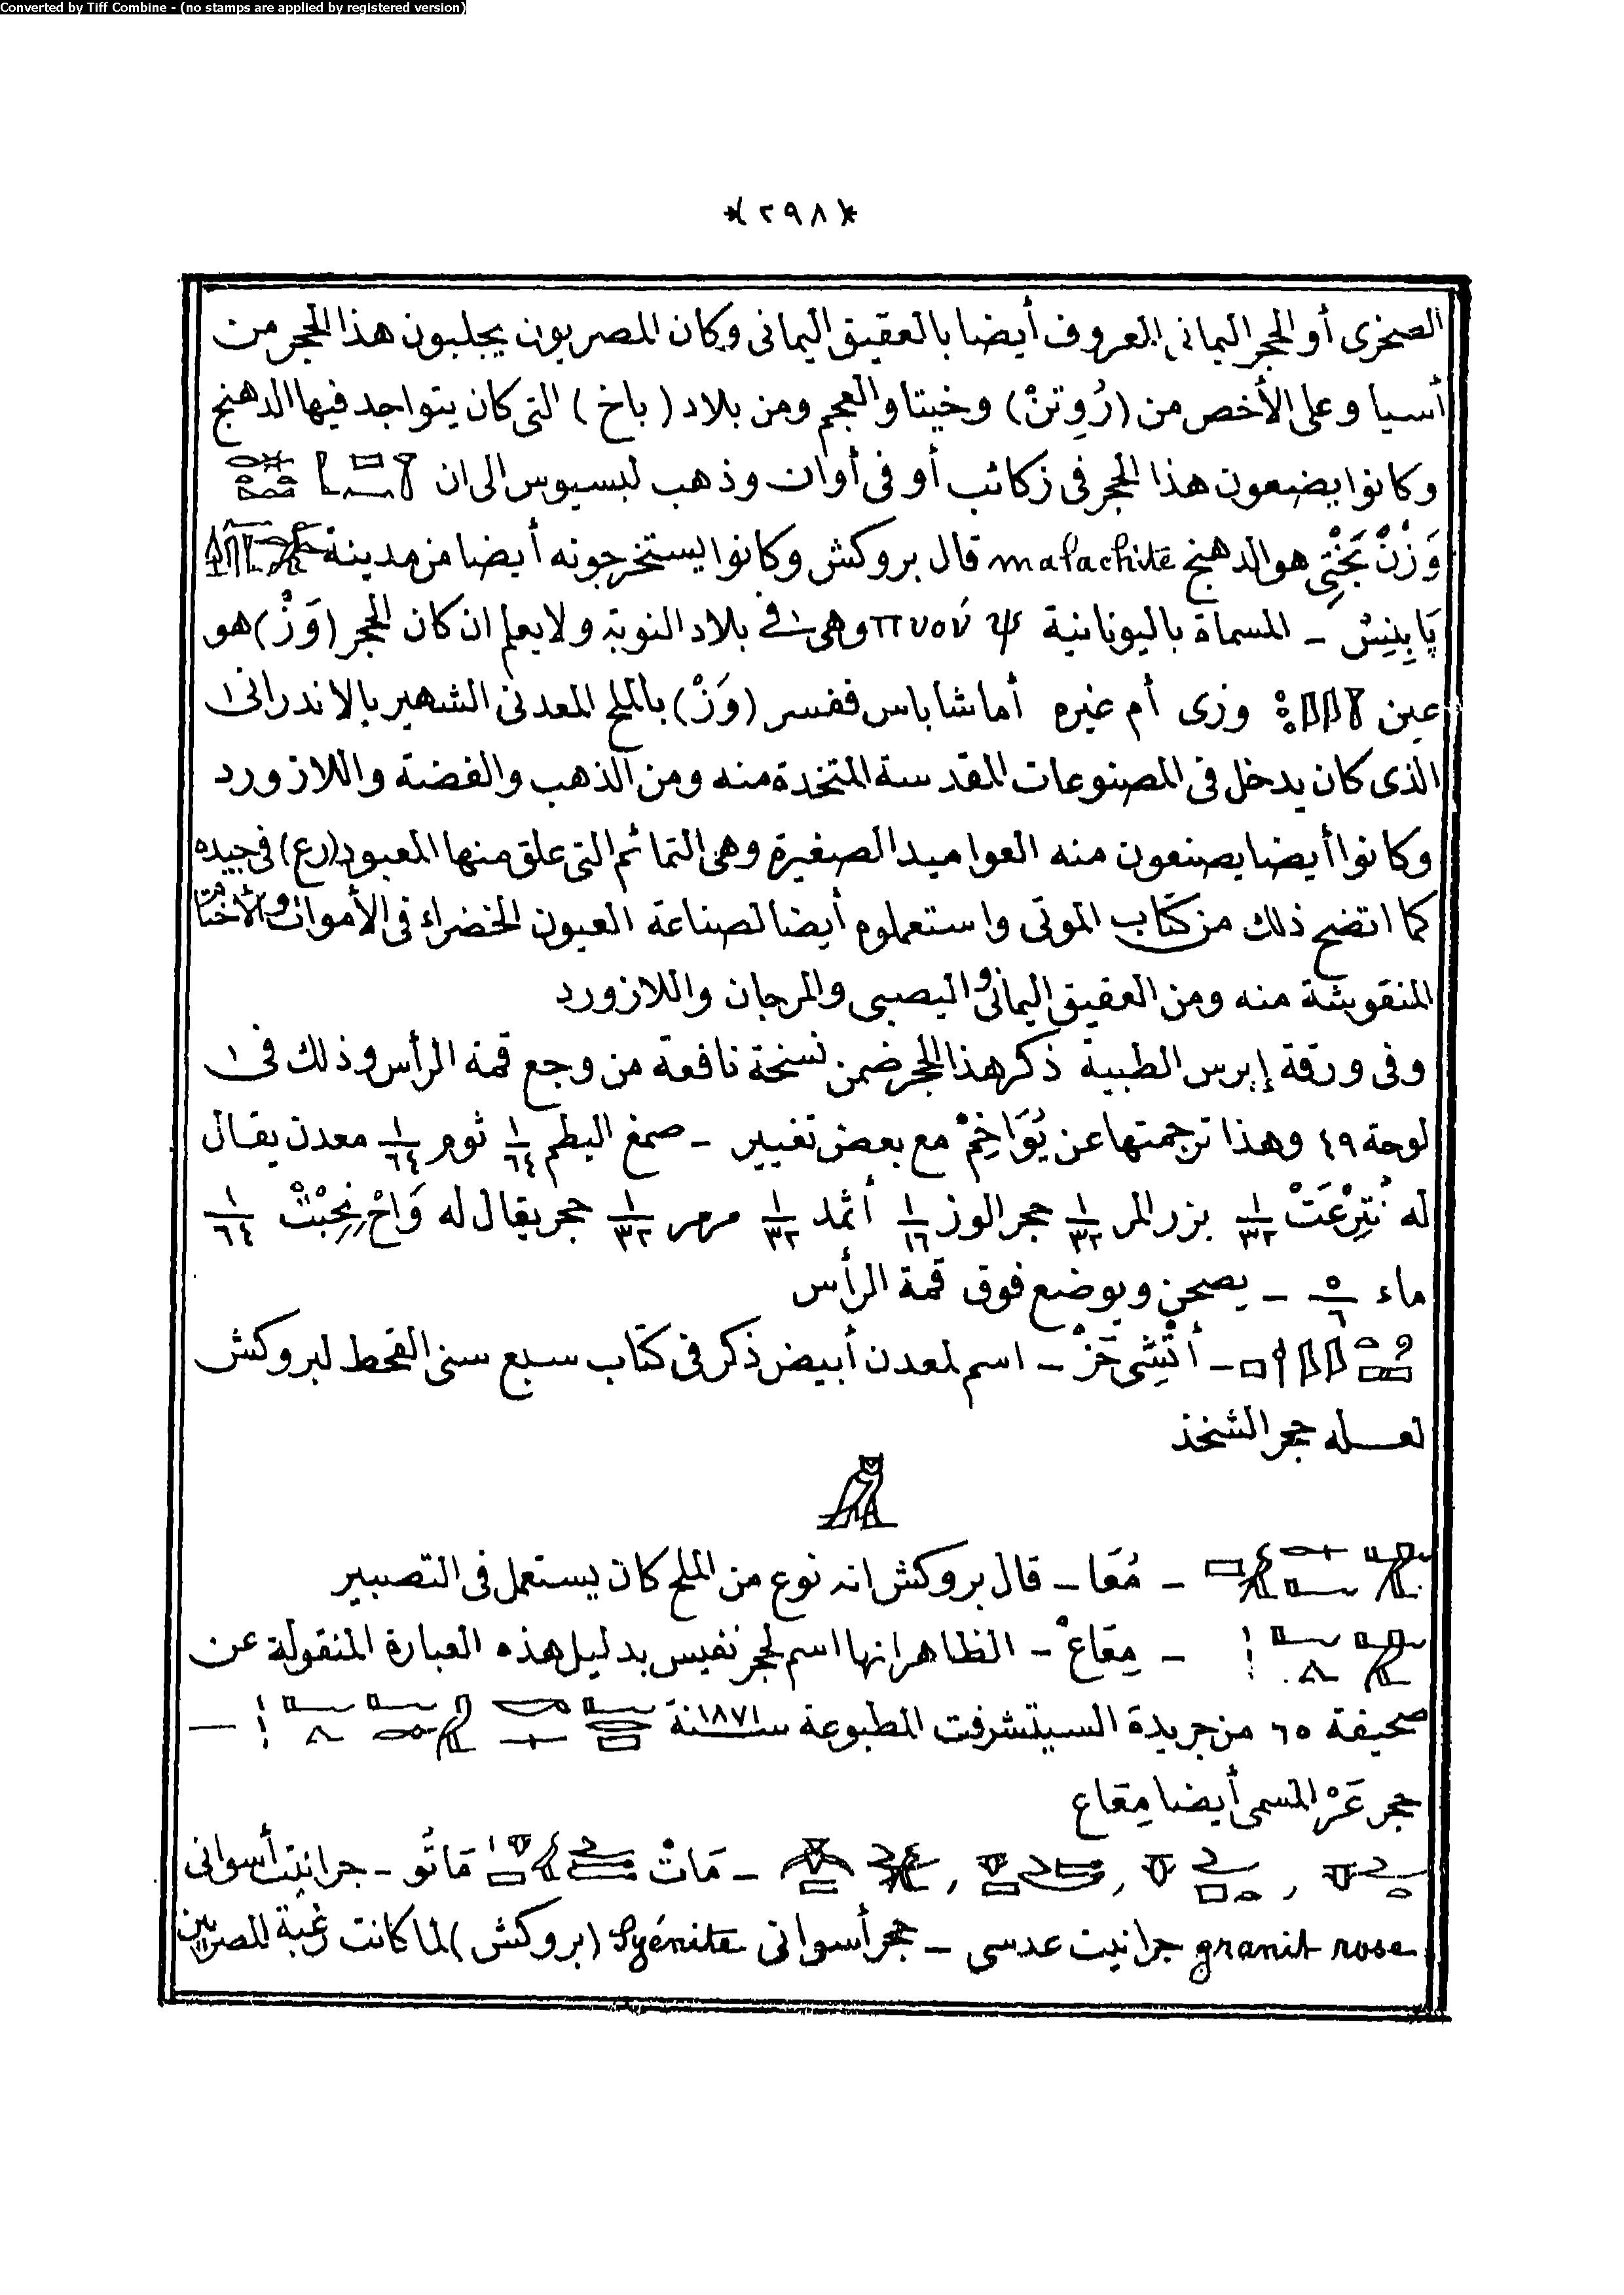 Converted by Tiff Combine - (no stamps are applied by registered version)
*(٢٩٨)*
الصخرى أو الحجر اليمانى المعروف أيضا بالعقيق اليمانى وكان المصريون يجلبون هذا الحجر من
أسيا وعلى الأخص من (رُوِتنْ) وخيتا والعجم ومن بلاد (باخ) التى كان يتواجد فيها الدهنج
وكانوا يضعون هذا الحجر فى زكائب أو فى أوان وذهب لبسيوس الى ان
وَزْنْ بَخْتِى هو الدهنج malachite قال بروكش وكانوا يستخرجونه أيضا من مدينة
پَابِنِسْ - المسماة باليونانية وهى فى بلاد النوبة ولا يعلم ان كان الحجر (وَزْ) هو
عين وزى أم غيره أما شاباس ففسر (وَزْ) بالملح المعدنى الشهير بالاندرانى
الذى كان يدخل فى المصنوعات المقدسة المتخدة منه ومن الذهب والفضة واللازورد
وكانوا أيضا يصنعون منه العواميد الصغيرة وهى التمائم التى علق منها المعبود (رع) فى جيده
كما اتضح ذلك من كتاب الموتى واستعملوه أيضا لصناعة العيون الخضراء فى الأموات
المنقوشة منه ومن العقيق اليمانى واليصبى والمرجان واللازورد
وفى ورقة إبرس الطبية ذكر هذا الحجر ضمن نسخة نافعة من وجع قمة الرأس وذلك فى
لوحة ٤٩ وهذا ترجمتها عن يُوَاخِمْ مع بعض تغيير - صمغ البطم ١/٦٤ ثوم ١/٦٤ معدن يقال
له نُتِرْعَتْ ١/٣٢ بزر المر ١/٣٢ حجر الوز ١/١٦ أثمد ١/٣٢ مرمر ١/٣٢ حجر يقال له وَاحْ نِحِبْتْ ١/٦٤
ماء ٥/٦ - يصحن ويوضع فوق قمة الرأس
- أتْشِى حَزْ - اسم لمعدن أبيض ذكر فى كتاب سبع سنى القحط لبروكش
لعله حجر الشخذ
- مُعَا - قال بروكش انه نوع من الملح كان يستعمل فى التصبير
- مِقَاعْ - الظاهر انها اسم لحجر نفيس بدليل هذه العبارة المنقولة عن
صحيفة ٦٥ من جريدة السيتشرفت المطبوعة سنة ١٨٧١ -
حجر عَرْ المسمى أيضا مِقَاع
- مَاتْ مَاتُو - جرانيت أسوانى
granit rose جرانيت عدسى - حجر أسوانى Syénite (بروكش) لما كانت رغبة المصريين